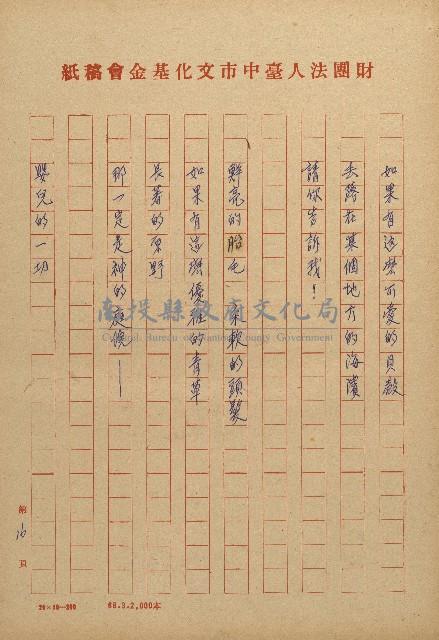 財團法人臺中市文化基金會稿紙
如果有這麼可愛的貝殼
失落在某個地方的海濱
請你告訴我！
鮮亮的胎毛 柔軟的頭髮
如果有這樣優雅的青草
長著的原野
那一定是神的庭院——
嬰兒的一切
第16頁
20×10—200
68.3.2,000本
南投縣政府文化局
Cultural Bureau of Nantou County Government